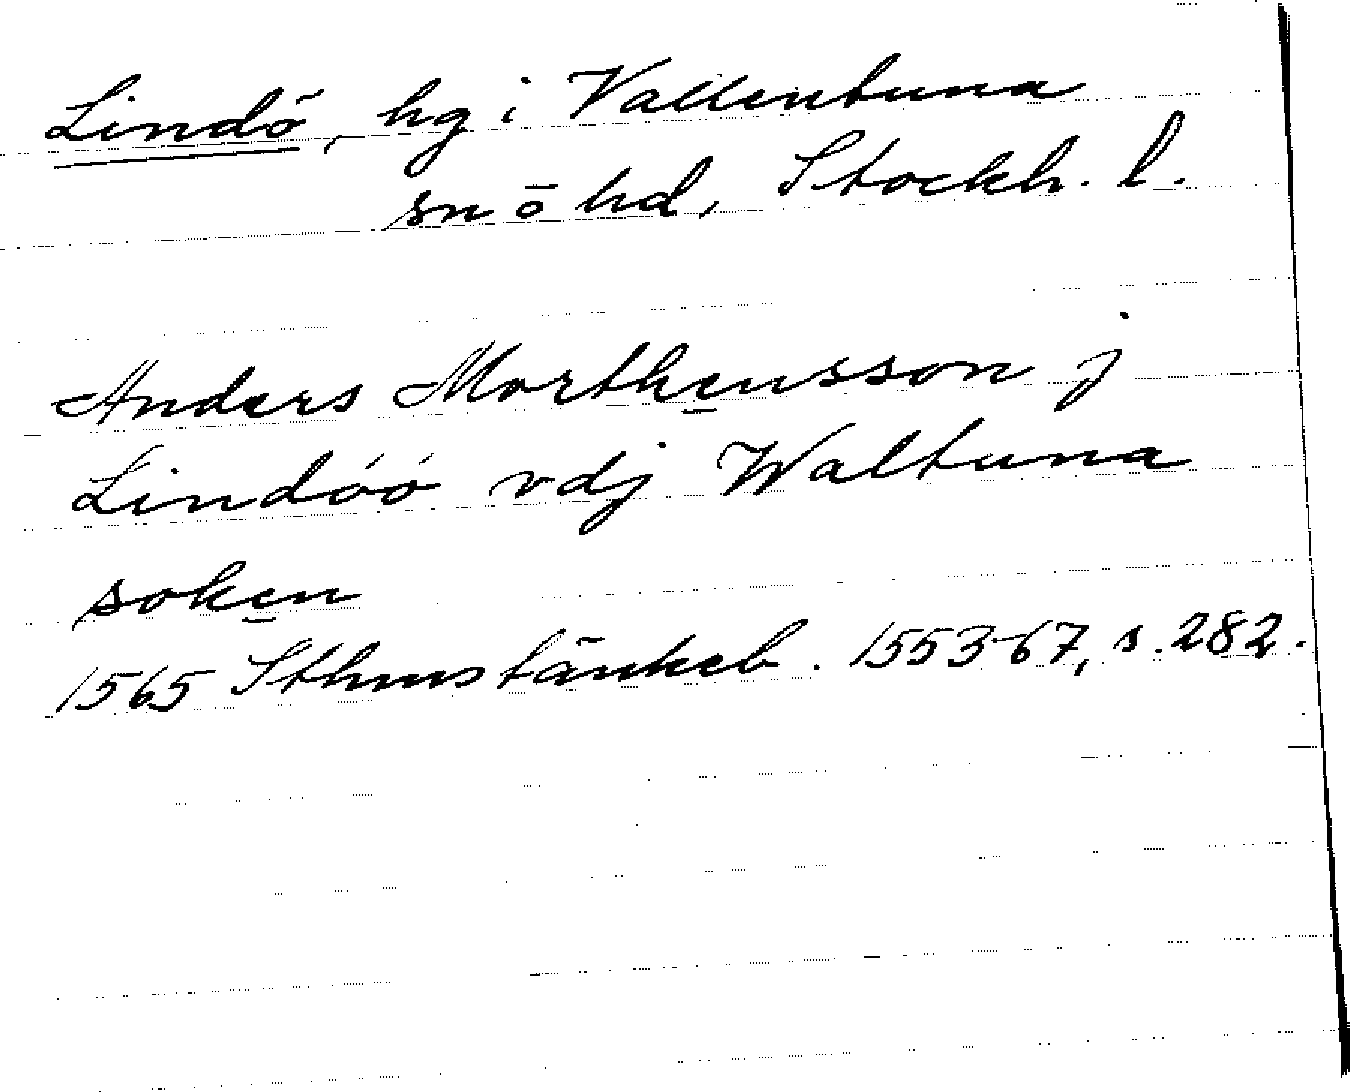 Lindö, hg i Vallentuna
sn ō hd, Stockh. l.
Anders Morthensson j
Lindóó vdj Waltuna
soken
1565 Sthms tänkeb. 1553-67, s. 282.